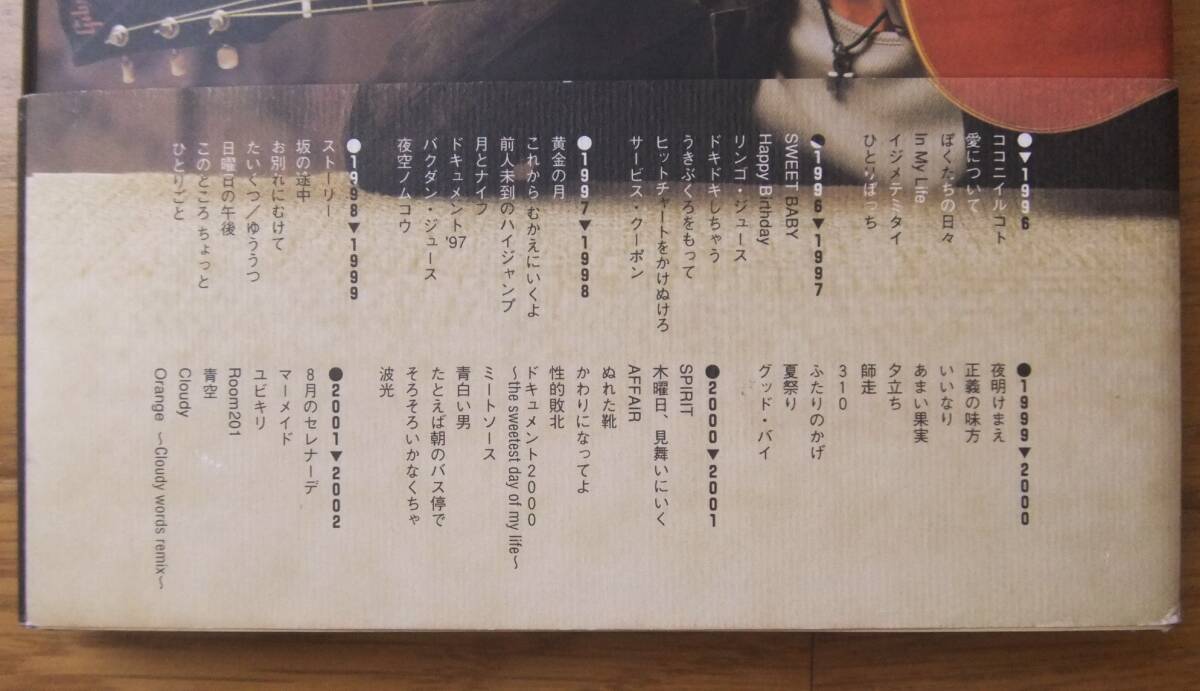 ●▼1996
ココニイルコト
愛について
ぼくたちの日々
In My Life
イジメテミタイ
ひとりぼっち
●1996▼1997
SWEET BABY
Happy Birthday
リンゴ・ジュース
ドキドキしちゃう
うきぶくろをもって
ヒットチャートをかけぬけろ
サービス・クーポン
●1997▼1998
黄金の月
これから むかえにいくよ
前人未到のハイジャンプ
月とナイフ
ドキュメント'97
バクダン・ジュース
夜空ノムコウ
●1998▼1999
ストーリー
坂の途中
お別れにむけて
たいくつ／ゆううつ
日曜日の午後
このところ ちょっと
ひとりごと
●1999▼2000
夜明けまえ
正義の味方
いいなり
あまい果実
夕立ち
師走
310
ふたりのかげ
夏祭り
グッド・バイ
●2000▼2001
SPIRIT
木曜日、見舞いにいく
AFFAIR
ぬれた靴
かわりになってよ
性的敗北
ドキュメント2000
～the sweetest day of my life～
ミートソース
青白い男
たとえば朝のバス停で
そろそろいかなくちゃ
波光
●2001▼2002
8月のセレナーデ
マーメイド
ユビキリ
Room201
青空
Cloudy
Orange ～Cloudy words remix～